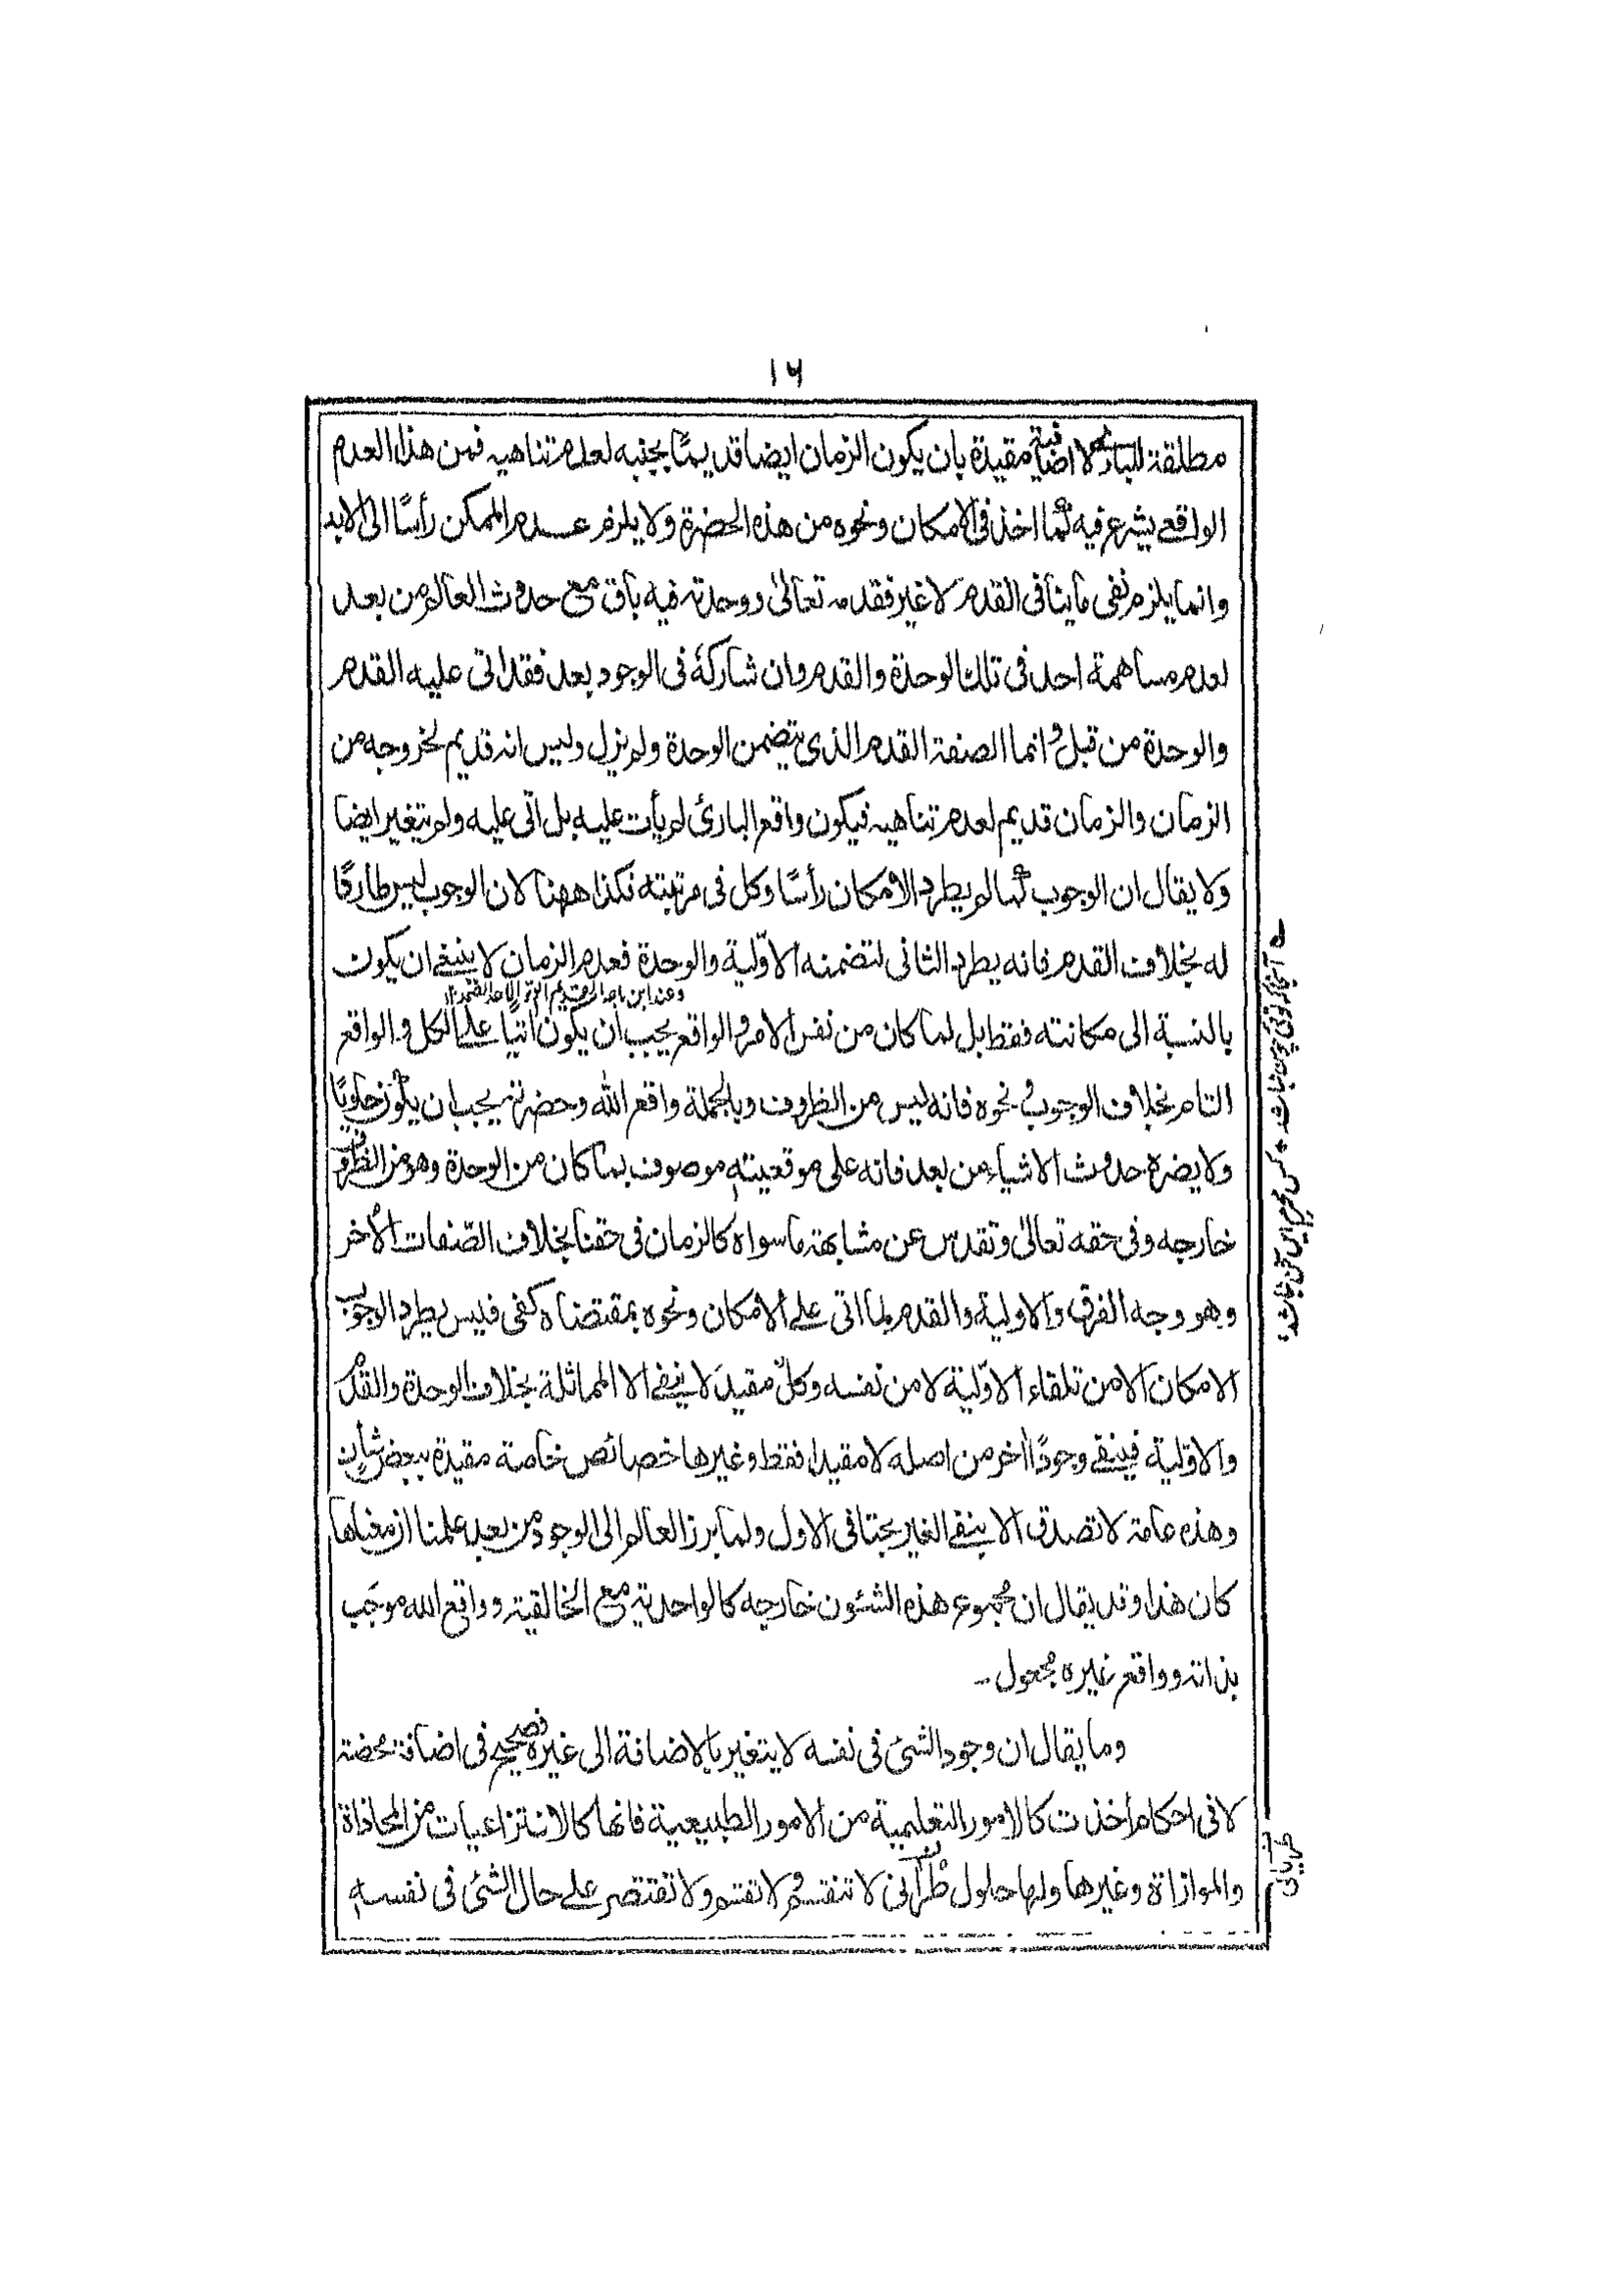 ۱۶
مطلقة للبارئ لا اضافية مقيدة بان يكون الزمان ايضا قديمًا بجنبه لعدم تناهيه فمن هذا العدم
الواقعي يشرع فيه لما اخذ فى الامكان ونحوه من هذه الحضرة ولا يلزم عدم الممكن رأسًا الى الابد
وانما يلزم نفى ما ينافى القدم لا غير فقدمه تعالىٰ ووحدته فيه باق مع حدوث العالم من بعد
لعدم مساهمة احد فى تلك الوحدة والقدم وان شاركهٗ فى الوجود بعد فقد اتى عليه القدم
والوحدة من قبل وانما الصنفة القدم الذى يتضمن الوحدة ولم يزل وليس انه قديم لخروجه من
الزمان والزمان قديم لعدم تناهيه فيكون واقع البارئ لم يأت عليه بل اتى عليه ولم يتغير ايضا
ولا يقال ان الوجوب لما لم يطرد الامكان رأسًا وكل فى مرتبته فكذا ههنا لان الوجوب ليس طاردًا
له بخلاف القدم فانه يطرد الثانى لتضمنه الاوّلية والوحدة فعدم الزمان لا ينبغى ان يكون
بالنسبة الى مكانته فقط بل لما كان من نفس الامر والواقع يجب ان يكون اتيًا على الكل والواقع
التام بخلاف الوجوب ونحوه فانه ليس من الظروف وبالجملة واقع الله وحضرته يجب ان يكون
ولا يضره حدوث الاشياء من بعد فانه على موقعيته موصوف بما كان من الوحدة وهو من الظروف
خارجه وفى حقه تعالىٰ وتقدس عن مشابهة ما سواه كالزمان فى حقنا بخلاف الصّفات الاُخر
وهو وجه الفرق والاولية والقدم لما اتى على الامكان ونحوه بمقتضاه كفى فليس يطرد الوجوب
الامكان الا من تلقاء الاوّلية لا من نفسه وكلٌ مقيد لا ينفى الا المماثلة بخلاف الوحدة والقدم
والاوّلية فينفى وجودًا اٰخر من اصله لا مقيدا فقط وغيرها خصائص خاصة مقيدة ببعض شأن
وهذه عامة لا تصدق الا بنفى الغير بحتا فى الاول ولما برز العالم الى الوجود من بعد علمنا ان معناها
كان هذا وقد يقال ان مجموع هذه الشئون خارجه كالواحدية مع الخالقية وواقع الله موجَب
بذاته وواقع غيره مجعول۔
وما يقال ان وجود الشئ فى نفسه لا يتغير بالاضافة الى غيره فصحيح فى اضافة محضة
لا فى احكام أخذت كالامور التعليمية من الامور الطبيعية فانها كالانتزاعيات من المحاذاة
والموازاة وغيرها ولها حلول طرآنى لا تنقسم ولا تقتسم ولا تقتصر على حال الشئ فى نفسه